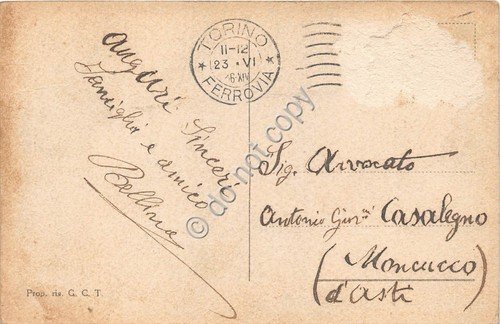 Auguri Sinceri
famiglia e amico
Bellina
TORINO
11-12
23 · VI
16 XIV
FERROVIA
Sig. Avvocato
Antonio Casalegno
(Moncucco)
d'Asti
Prop. ris. G. C. T
do not copy